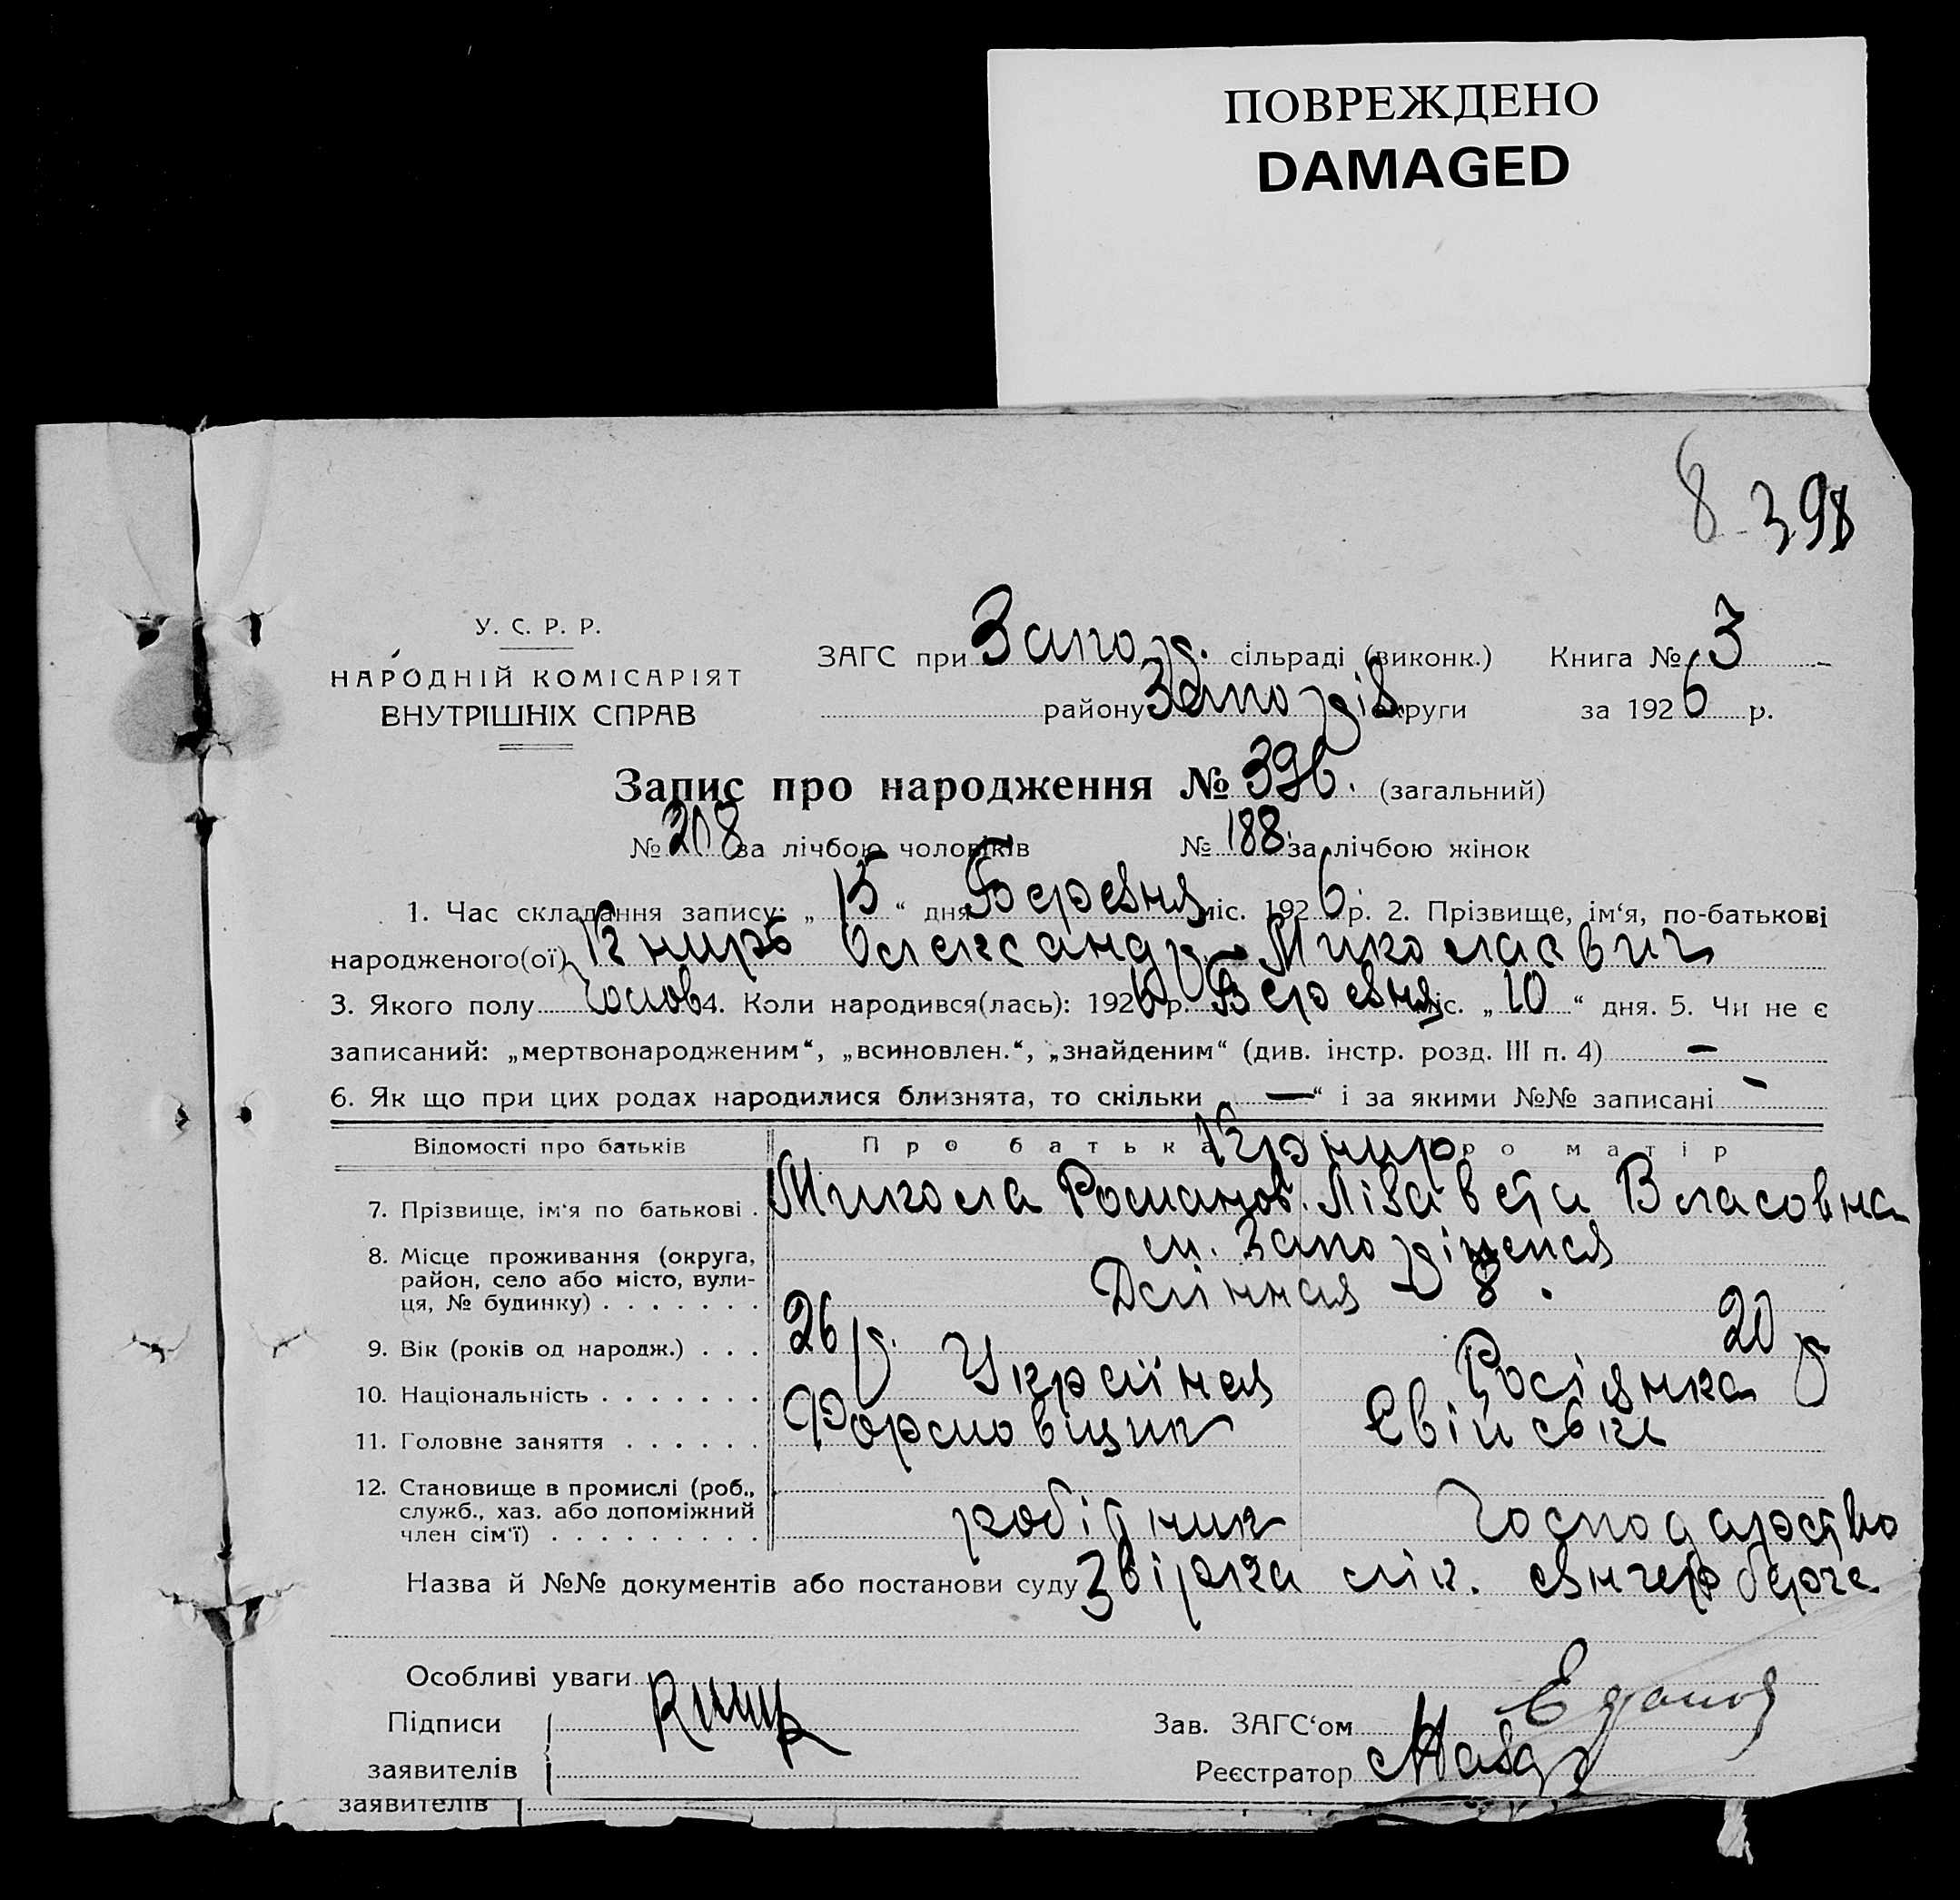 ПОВРЕЖДЕНО
DAMAGED
8 - 398
У. С. Р. Р.
НАРОДНІЙ КОМІСАРІЯТ
ВНУТРІШНІХ СПРАВ
ЗАГС при Запор. сільраді (виконк.) Книга № 3
району Запоріз. округи за 1926 р.
Запис про народження № 396. (загальний)
№ 208 за лічбою чоловіків № 188 за лічбою жінок
1. Час складання запису: „ 15 “ дня Березня міс. 1926 р. 2. Прізвище, ім‘я, по-батькові
народженого(ої) Книрь Олександр Миколаєвич
3. Якого полу чолов 4. Коли народився(лась): 1926 р. Березня міс. „ 10 “ дня. 5. Чи не є
записаний: „мертвонародженим“, „всиновлен.“, „знайденим“ (див. інстр. розд. III п. 4) —
6. Як що при цих родах народилися близнята, то скільки „ — “ і за якими №№ записані —
Відомості про батьків Про батька Про матір
7. Прізвище, ім‘я по батькові . Микола Романов. Лізавета Власовна
8. Місце проживання (округа,
район, село або місто, вули-
ця, № будинку) . . . . . . .
м. Запоріжжя
8.
9. Вік (років од народж.) . . . 26 р. 20 р
10. Національність . . . . . . . Українец Росіянка
11. Головне заняття . . . . . . Формовщик Свійське
12. Становище в промислі (роб.,
служб., хаз. або допоміжний
член сім‘ї) . . . . . . . . . .
робідник господарство
Назва й №№ документів або постанови суду Звірка лік.
Особливі уваги
Підписи Зав. ЗАГС‘ом
заявителів Реєстратор
заявителів